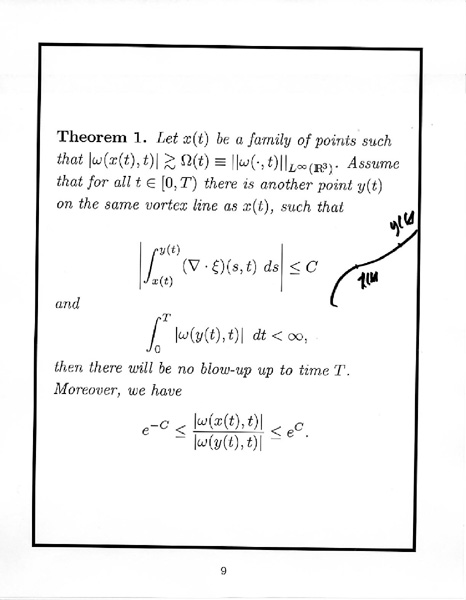 Theorem 1. Let x(t) be a family of points such
that |ω(x(t), t)| ≳ Ω(t) ≡ ||ω(·, t)||_{L^∞(ℝ³)}. Assume
that for all t ∈ [0, T) there is another point y(t)
on the same vortex line as x(t), such that
y(t)
|∫_{x(t)}^{y(t)} (∇ · ξ)(s, t) ds| ≤ C
x(t)
and
∫_0^T |ω(y(t), t)| dt < ∞,
then there will be no blow-up up to time T.
Moreover, we have
e^{-C} ≤ |ω(x(t), t)| / |ω(y(t), t)| ≤ e^C.
9